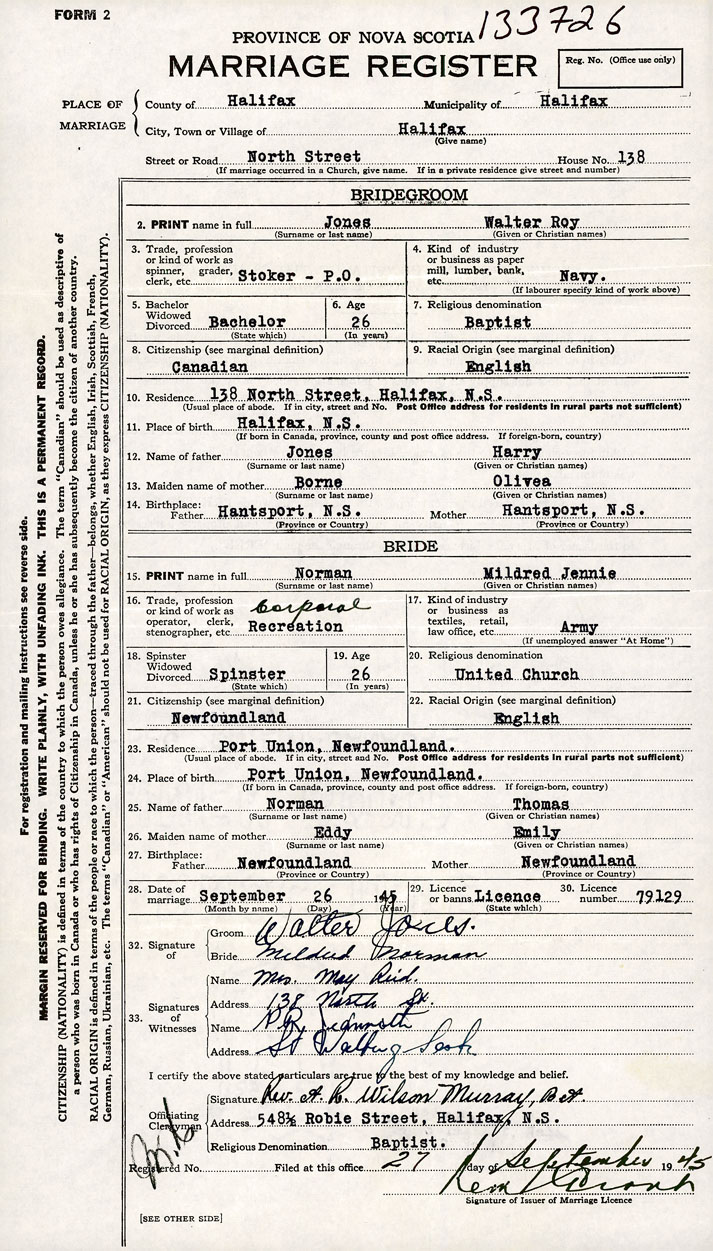 FORM 2
133726
PROVINCE OF NOVA SCOTIA
MARRIAGE REGISTER
Reg. No. (Office use only)
PLACE OF MARRIAGE
County of Halifax Municipality of Halifax
City, Town or Village of Halifax
(Give name)
Street or Road North Street House No. 138
(If marriage occurred in a Church, give name. If in a private residence give street and number)
BRIDEGROOM
2. PRINT name in full Jones Walter Roy
(Surname or last name) (Given or Christian names)
3. Trade, profession or kind of work as spinner, grader, clerk, etc. Stoker - P.O.
4. Kind of industry or business as paper mill, lumber, bank, etc. Navy.
(If labourer specify kind of work above)
5. Bachelor Widowed Divorced Bachelor
(State which)
6. Age 26
(In years)
7. Religious denomination
Baptist
8. Citizenship (see marginal definition)
Canadian
9. Racial Origin (see marginal definition)
English
10. Residence 138 North Street, Halifax, N.S.
(Usual place of abode. If in city, street and No. Post Office address for residents in rural parts not sufficient)
11. Place of birth Halifax, N.S.
(If born in Canada, province, county and post office address. If foreign-born, country)
12. Name of father Jones Harry
(Surname or last name) (Given or Christian names)
13. Maiden name of mother Borne Olivea
(Surname or last name) (Given or Christian names)
14. Birthplace: Father Hantsport, N.S. Mother Hantsport, N.S.
(Province or Country) (Province or Country)
BRIDE
15. PRINT name in full Norman Mildred Jennie
(Surname or last name) (Given or Christian names)
16. Trade, profession or kind of work as operator, clerk, stenographer, etc. Corporal Recreation
17. Kind of industry or business as textiles, retail, law office, etc. Army
(If unemployed answer "At Home")
18. Spinster Widowed Divorced Spinster
(State which)
19. Age 26
(In years)
20. Religious denomination
United Church
21. Citizenship (see marginal definition)
Newfoundland
22. Racial Origin (see marginal definition)
English
23. Residence Port Union, Newfoundland.
(Usual place of abode. If in city, street and No. Post Office address for residents in rural parts not sufficient)
24. Place of birth Port Union, Newfoundland.
(If born in Canada, province, county and post office address. If foreign-born, country)
25. Name of father Norman Thomas
(Surname or last name) (Given or Christian names)
26. Maiden name of mother Eddy Emily
(Surname or last name) (Given or Christian names)
27. Birthplace: Father Newfoundland Mother Newfoundland
(Province or Country) (Province or Country)
28. Date of marriage September 26 1945
(Month by name) (Day) (Year)
29. Licence or banns Licence
(State which)
30. Licence number 79129
32. Signature of
Groom Walter Jones.
Bride Mildred Norman
33. Signatures of Witnesses
Name Mrs. May Reid.
Address 138 North St.
Name P.R.
Address St Walburg Sask
I certify the above stated particulars are true to the best of my knowledge and belief.
Officiating Clergyman
Signature Rev. A. R. Wilson Murray, B.A.
Address 548½ Robie Street, Halifax, N.S.
Religious Denomination Baptist.
Registered No. Filed at this office 27 day of September 1945
Signature of Issuer of Marriage Licence
[SEE OTHER SIDE]
For registration and mailing instructions see reverse side.
MARGIN RESERVED FOR BINDING. WRITE PLAINLY, WITH UNFADING INK. THIS IS A PERMANENT RECORD.
CITIZENSHIP (NATIONALITY) is defined in terms of the country to which the person owes allegiance. The term "Canadian" should be used as descriptive of
a person who was born in Canada or who has rights of Citizenship in Canada, unless he or she has subsequently become the citizen of another country.
RACIAL ORIGIN is defined in terms of the people or race to which the person—traced through the father—belongs, whether English, Irish, Scottish, French,
German, Russian, Ukrainian, etc. The terms "Canadian" or "American" should not be used for RACIAL ORIGIN, as they express CITIZENSHIP (NATIONALITY).